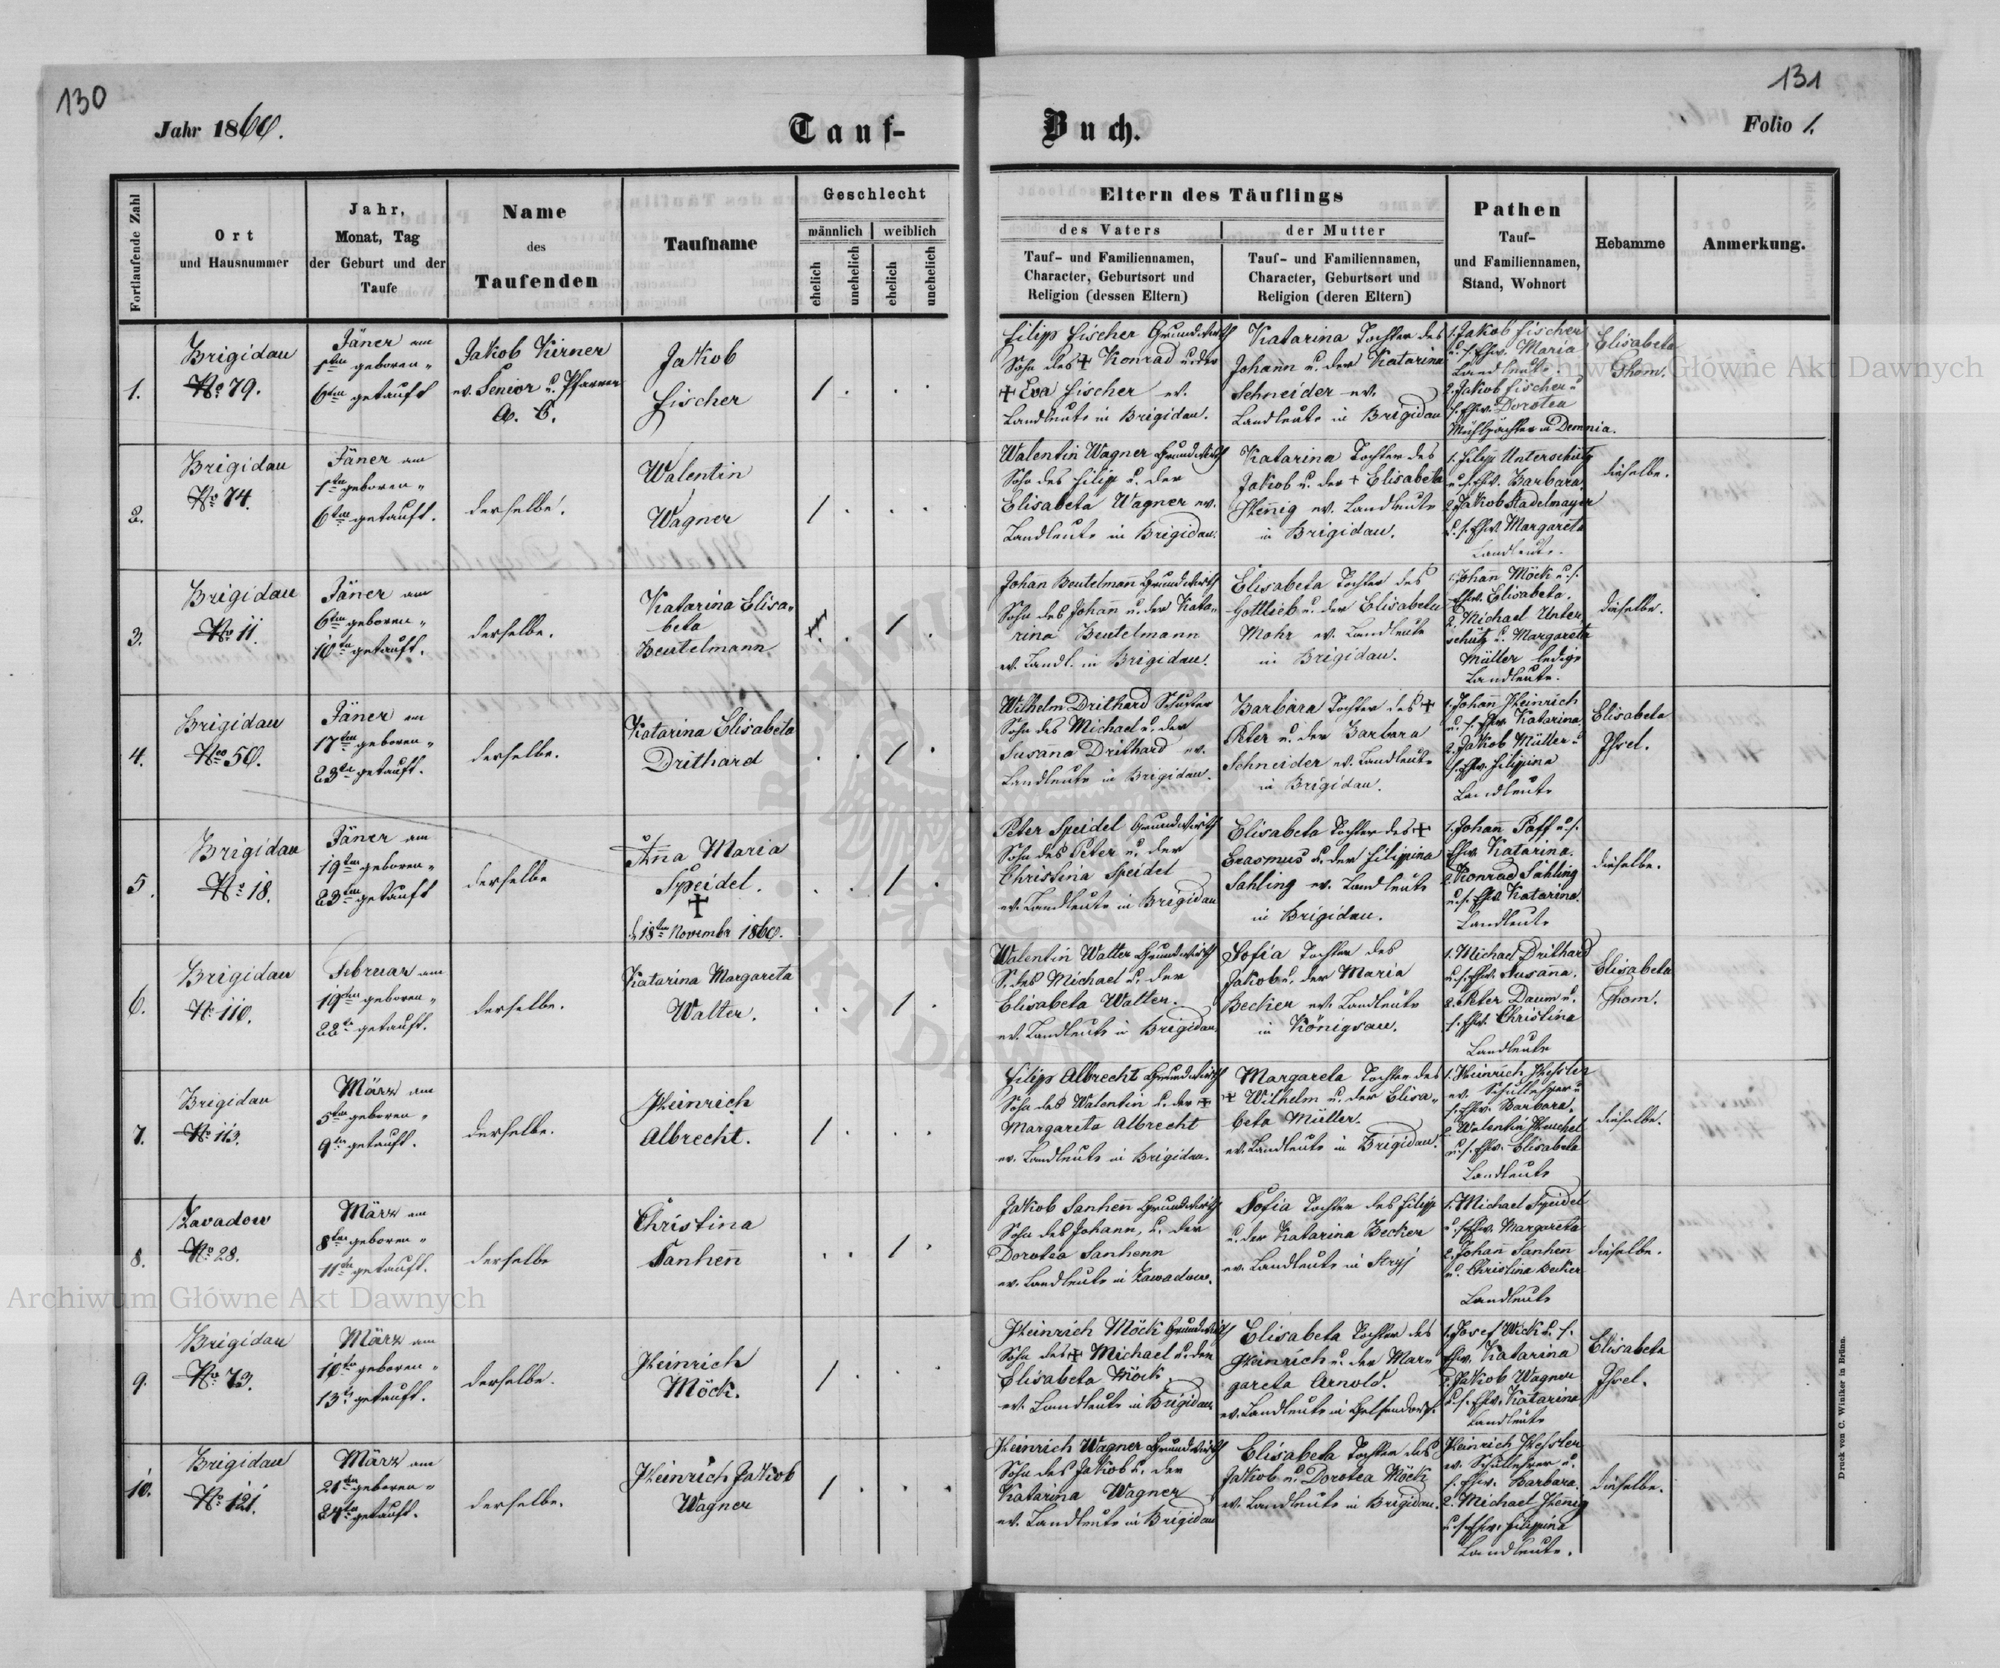 130
131
Jahr 1860.
Tauf-
Buch.
Folio 1.
Fortlaufende Zahl
Ort
und Hausnummer
Jahr,
Monat, Tag
der Geburt und der
Taufe
Name
des
Taufenden
Taufname
Geschlecht
männlich
weiblich
ehelich
unehelich
ehelich
unehelich
Eltern des Täuflings
des Vaters
Tauf- und Familiennamen,
Character, Geburtsort und
Religion (dessen Eltern)
der Mutter
Tauf- und Familiennamen,
Character, Geburtsort und
Religion (deren Eltern)
Pathen
Tauf-
und Familiennamen,
Stand, Wohnort
Hebamme
Anmerkung.
1.
Brigidau
No 79.
Jäner am
1ten geboren
6ten getauft
Jakob Kirner
ev. Senior u. Pfarrer
A. C.
Jakob
Fischer
1
Filipp Fischer Grundwirth
Sohn des + Konrad u. der
+ Eva Fischer ev.
Landleute in Brigidau.
Katarina Tochter des
Johann u. der Katarina
Schneider ev.
Landleute in Brigidau
1. Jakob Fischer
u. s. Ehw. Maria
Landleute.
2. Jakob Fischer u
s. Ehw. Dorotea
Mühlpächter in Demnia.
Elisabeta
Thom.
2.
Brigidau
No 74.
Jäner am
1ten geboren
6ten getauft.
derselbe.
Walentin
Wagner
1
Walentin Wagner Grundwirth
Sohn des Filip u. der
Elisabeta Wagner ev.
Landleute in Brigidau.
Katarina Tochter des
Jakob u. der + Elisabeta
Henig ev. Landleute
in Brigidau.
1. Filipp Unterschütz
u. s. Ehw. Barbara
2. Jakob Stadelmayer
u. s. Ehw. Margareta
Landleute.
dieselbe.
3.
Brigidau
No 11.
Jäner am
6ten geboren
10ten getauft.
derselbe.
Katarina Elisa-
beta
Beutelmann
1
Johann Beutelman Grundwirth
Sohn des Johann u. der Kata-
rina Beutelmann
ev. Landl. in Brigidau.
Elisabeta Tochter des
Gottlieb u. der Elisabeta
Mohr ev. Landleute
in Brigidau.
1. Johann Möck u. s.
Ehw. Elisabeta.
2. Michael Unter-
schütz u. Margareta
Müller ledige
Landleute.
dieselbe.
4.
Brigidau
No 50.
Jäner am
17ten geboren
23ten getauft.
derselbe.
Katarina Elisabeta
Drithard
1
Wilhelm Drithard Schuster
Sohn des Michael u. der
Susana Drithard ev.
Landleute in Brigidau.
Barbara Tochter des +
Peter u. der Barbara
Schneider ev. Landleute
in Brigidau.
1. Johann Heinrich
u. s. Ehw. Katarina
2. Jakob Müller u
s. Ehw. Filippina
Landleute
Elisabeta
5.
Brigidau
No 18.
Jäner am
19ten geboren
23ten getauft
derselbe
Anna Maria
Speidel.
+
d. 18ten November 1860.
1
Peter Speidel Grundwirth
Sohn des Peter u. der
Christina Speidel
ev. Landleute in Brigidau
Elisabeta Tochter des +
Erasmus u. der Filippina
Sahling ev. Landleute
in Brigidau.
1. Johann Paff u. s.
Ehw. Katarina.
2. Konrad Sahling
u. s. Ehw. Katarina.
Landleute
dieselbe.
6.
Brigidau
No 110.
Februar am
19ten geboren
22ten getauft.
derselbe.
Katarina Margareta
Walter.
1
Walentin Walter Grundwirth
S. des Michael u. der
Elisabeta Walter.
ev. Landleute in Brigidau
Sofia Tochter des
Jakob u. der Maria
Becker ev. Landleute
in Königsau.
1. Michael Drithard
u. s. Ehw. Susanna.
2. Peter Daum u.
s. Ehw. Christina
Landleute
Elisabeta
Thom.
7.
Brigidau
No 113.
März am
5ten geboren
9ten getauft.
derselbe.
Heinrich
Albrecht.
1
Filipp Albrecht Grundwirth
Sohn des Walentin u. der +
Margareta Albrecht
ev. Landleute in Brigidau.
Margareta Tochter des
+ Wilhelm u. der Elisa-
beta Müller.
ev. Landleute in Brigidau.
1. Heinrich Hessler
ev. Schullehrer u
s. Ehw. Barbara.
2. Walentin Henchel
u. s. Ehw. Elisabeta
Landleute
dieselbe.
8.
Zavadow
No 28.
März am
8ten geboren
11ten getauft.
derselbe
Christina
Sanhen̄
1
Jakob Sanhen̄ Grundwirth
Sohn des Johann, u. der
Dorotea Sanhenn
ev. Landleute in Zawadow.
Sofia Tochter des Filipp
u. der Katarina Becker
ev. Landleute in Stryj
1. Michael Speidel
u. s. Ehw. Margareta
2. Johann Sanhen
u. Christina Becker
Landleute
dieselbe.
9.
Brigidau
No 73.
März am
10ten geboren
13ten getauft.
derselbe.
Heinrich
Möck.
1
Heinrich Möck Grundwirth
Sohn des + Michael u. der
Elisabeta Möck
ev. Landleute in Brigidau
Elisabeta Tochter des
Heinrich u. der Mar-
gareta Arnold.
ev. Landleute in Gelsendorf.
1. Josef Wick u. s.
Ehw. Katarina
2. Jakob Wagner
u. s. Ehw. Katarina
Landleute
Elisabeta
10.
Brigidau
No 121.
März am
21ten geboren
24ten getauft.
derselbe.
Heinrich Jakob
Wagner
1
Heinrich Wagner Grundwirth
Sohn des Jakob u. der
Katarina Wagner
ev. Landleute in Brigidau
Elisabeta Tochter des
Jakob u. Dorotea Möck
ev. Landleute in Brigidau.
Heinrich Hessler
ev. Schullehrer u.
s. Ehw. Barbara.
2. Michael Henig
u. s. Ehw. Filippina
Landleute.
dieselbe.
Druck von C. Winiker in Brünn.
Archiwum Główne Akt Dawnych
Archiwum Główne Akt Dawnych